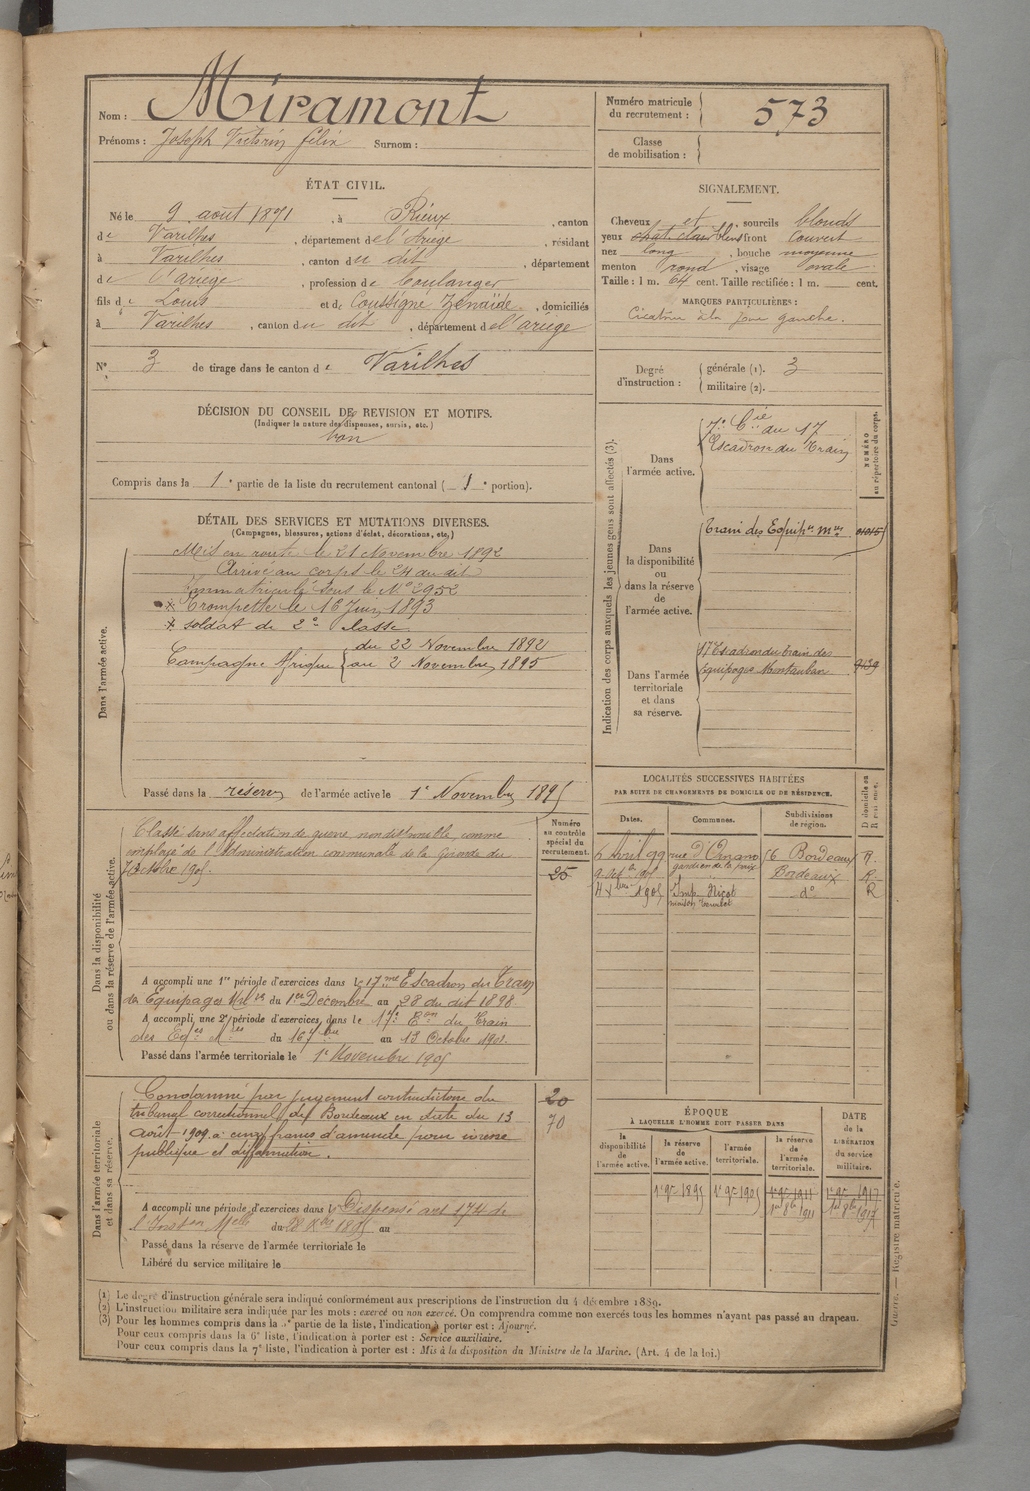 Nom : Miramont
Prénoms : Joseph Victorin félix Surnom :
Numéro matricule du recrutement : 573
Classe de mobilisation :
ÉTAT CIVIL.
Né le 9 août 1871, à Rieux, canton
de Varilhes, département de l'Ariège, résidant
à Varilhes, canton du dit, département
de l'ariège, profession de boulanger
fils de Louis et de Coussigne Zénaïde, domiciliés
à Varilhes, canton du dit, département de l'ariège
N° 3 de tirage dans le canton de Varilhes
SIGNALEMENT.
Cheveux et sourcils blonds
yeux chat. clair bleus front couvert
nez long, bouche moyenne
menton rond, visage ovale
Taille : 1 m. 64 cent. Taille rectifiée : 1 m. cent.
MARQUES PARTICULIÈRES :
Cicatrice à la joue gauche.
Degré d'instruction : générale (1). 3
militaire (2).
DÉCISION DU CONSEIL DE REVISION ET MOTIFS.
(Indiquer la nature des dispenses, sursis, etc.)
bon
Compris dans la 1e partie de la liste du recrutement cantonal ( 1e portion).
DÉTAIL DES SERVICES ET MUTATIONS DIVERSES.
(Campagnes, blessures, actions d'éclat, décorations, etc.)
Dans l'armée active.
Mis en route le 21 Novembre 1892
Arrivé au corps le 24 du dit
Immatriculé sous le N° 2952
* Trompette le 16 Juin 1893
* soldat de 2e classe
Campagne Afrique du 22 Novembre 1892
au 2 Novembre 1895
Passé dans la réserve de l'armée active le 1er Novembre 1895
Indication des corps auxquels les jeunes gens sont affectés (3).
NUMÉRO au répertoire du corps.
Dans l'armée active.
7e Cie du 17
Escadron du Train
Dans la disponibilité ou dans la réserve de l'armée active.
Train des Equip. mres
Dans l'armée territoriale et dans sa réserve.
17 Escadron du train des
équipages Montauban 9439
Dans la disponibilité ou dans la réserve de l'armée active.
Numéro au contrôle spécial du recrutement.
25
Classé sans affectation de guerre, non disponible, comme
employé de l'Administration communale de la Gironde du
7 Octobre 1901.
A accompli une 1re période d'exercices dans le 17me Escadron du Train
des Equipages Mres du 1er Décembre au 28 du dit 1898
A accompli une 2e période d'exercices dans le 17e Eon du Train
des Eqes Mres du 16 7bre au 13 Octobre 1901.
Passé dans l'armée territoriale le 1er Novembre 1905
LOCALITÉS SUCCESSIVES HABITÉES
PAR SUITE DE CHANGEMENTS DE DOMICILE OU DE RÉSIDENCE.
Dates. Communes. Subdivisions de région. D domicile ou R résidence.
6 Avril 99 rue d'Ornano Bordeaux R.
gardien de la paix
Bordeaux R.
Imp. Nicot do R
Dans l'armée territoriale et dans sa réserve.
20
70
Condamné par jugement contradictoire du
tribunal correctionnel de Bordeaux en date du 13
août 1909 à cinq francs d'amende pour ivresse
publique et diffamation.
A accompli une période d'exercices dans le Dispensé art 174 de
l'Inston Melle du au
Passé dans la réserve de l'armée territoriale le
Libéré du service militaire le
ÉPOQUE
À LAQUELLE L'HOMME DOIT PASSER DANS
la disponibilité de l'armée active.
la réserve de l'armée active.
l'armée territoriale.
la réserve de l'armée territoriale.
DATE de la LIBÉRATION du service militaire.
1er 9bre 1895 1er 9bre 1905 1er 9bre 1911 1er 9bre 1917
1er 8bre 1911 1er 8bre 1917
(1) Le degré d'instruction générale sera indiqué conformément aux prescriptions de l'instruction du 4 décembre 1889.
(2) L'instruction militaire sera indiquée par les mots : exercé ou non exercé. On comprendra comme non exercés tous les hommes n'ayant pas passé au drapeau.
(3) Pour les hommes compris dans la partie de la liste, l'indication à porter est : Ajourné.
Pour ceux compris dans la 6e liste, l'indication à porter est : Service auxiliaire.
Pour ceux compris dans la 7e liste, l'indication à porter est : Mis à la disposition du Ministre de la Marine. (Art. 4 de la loi.)
Guerre. — Registre matricule.